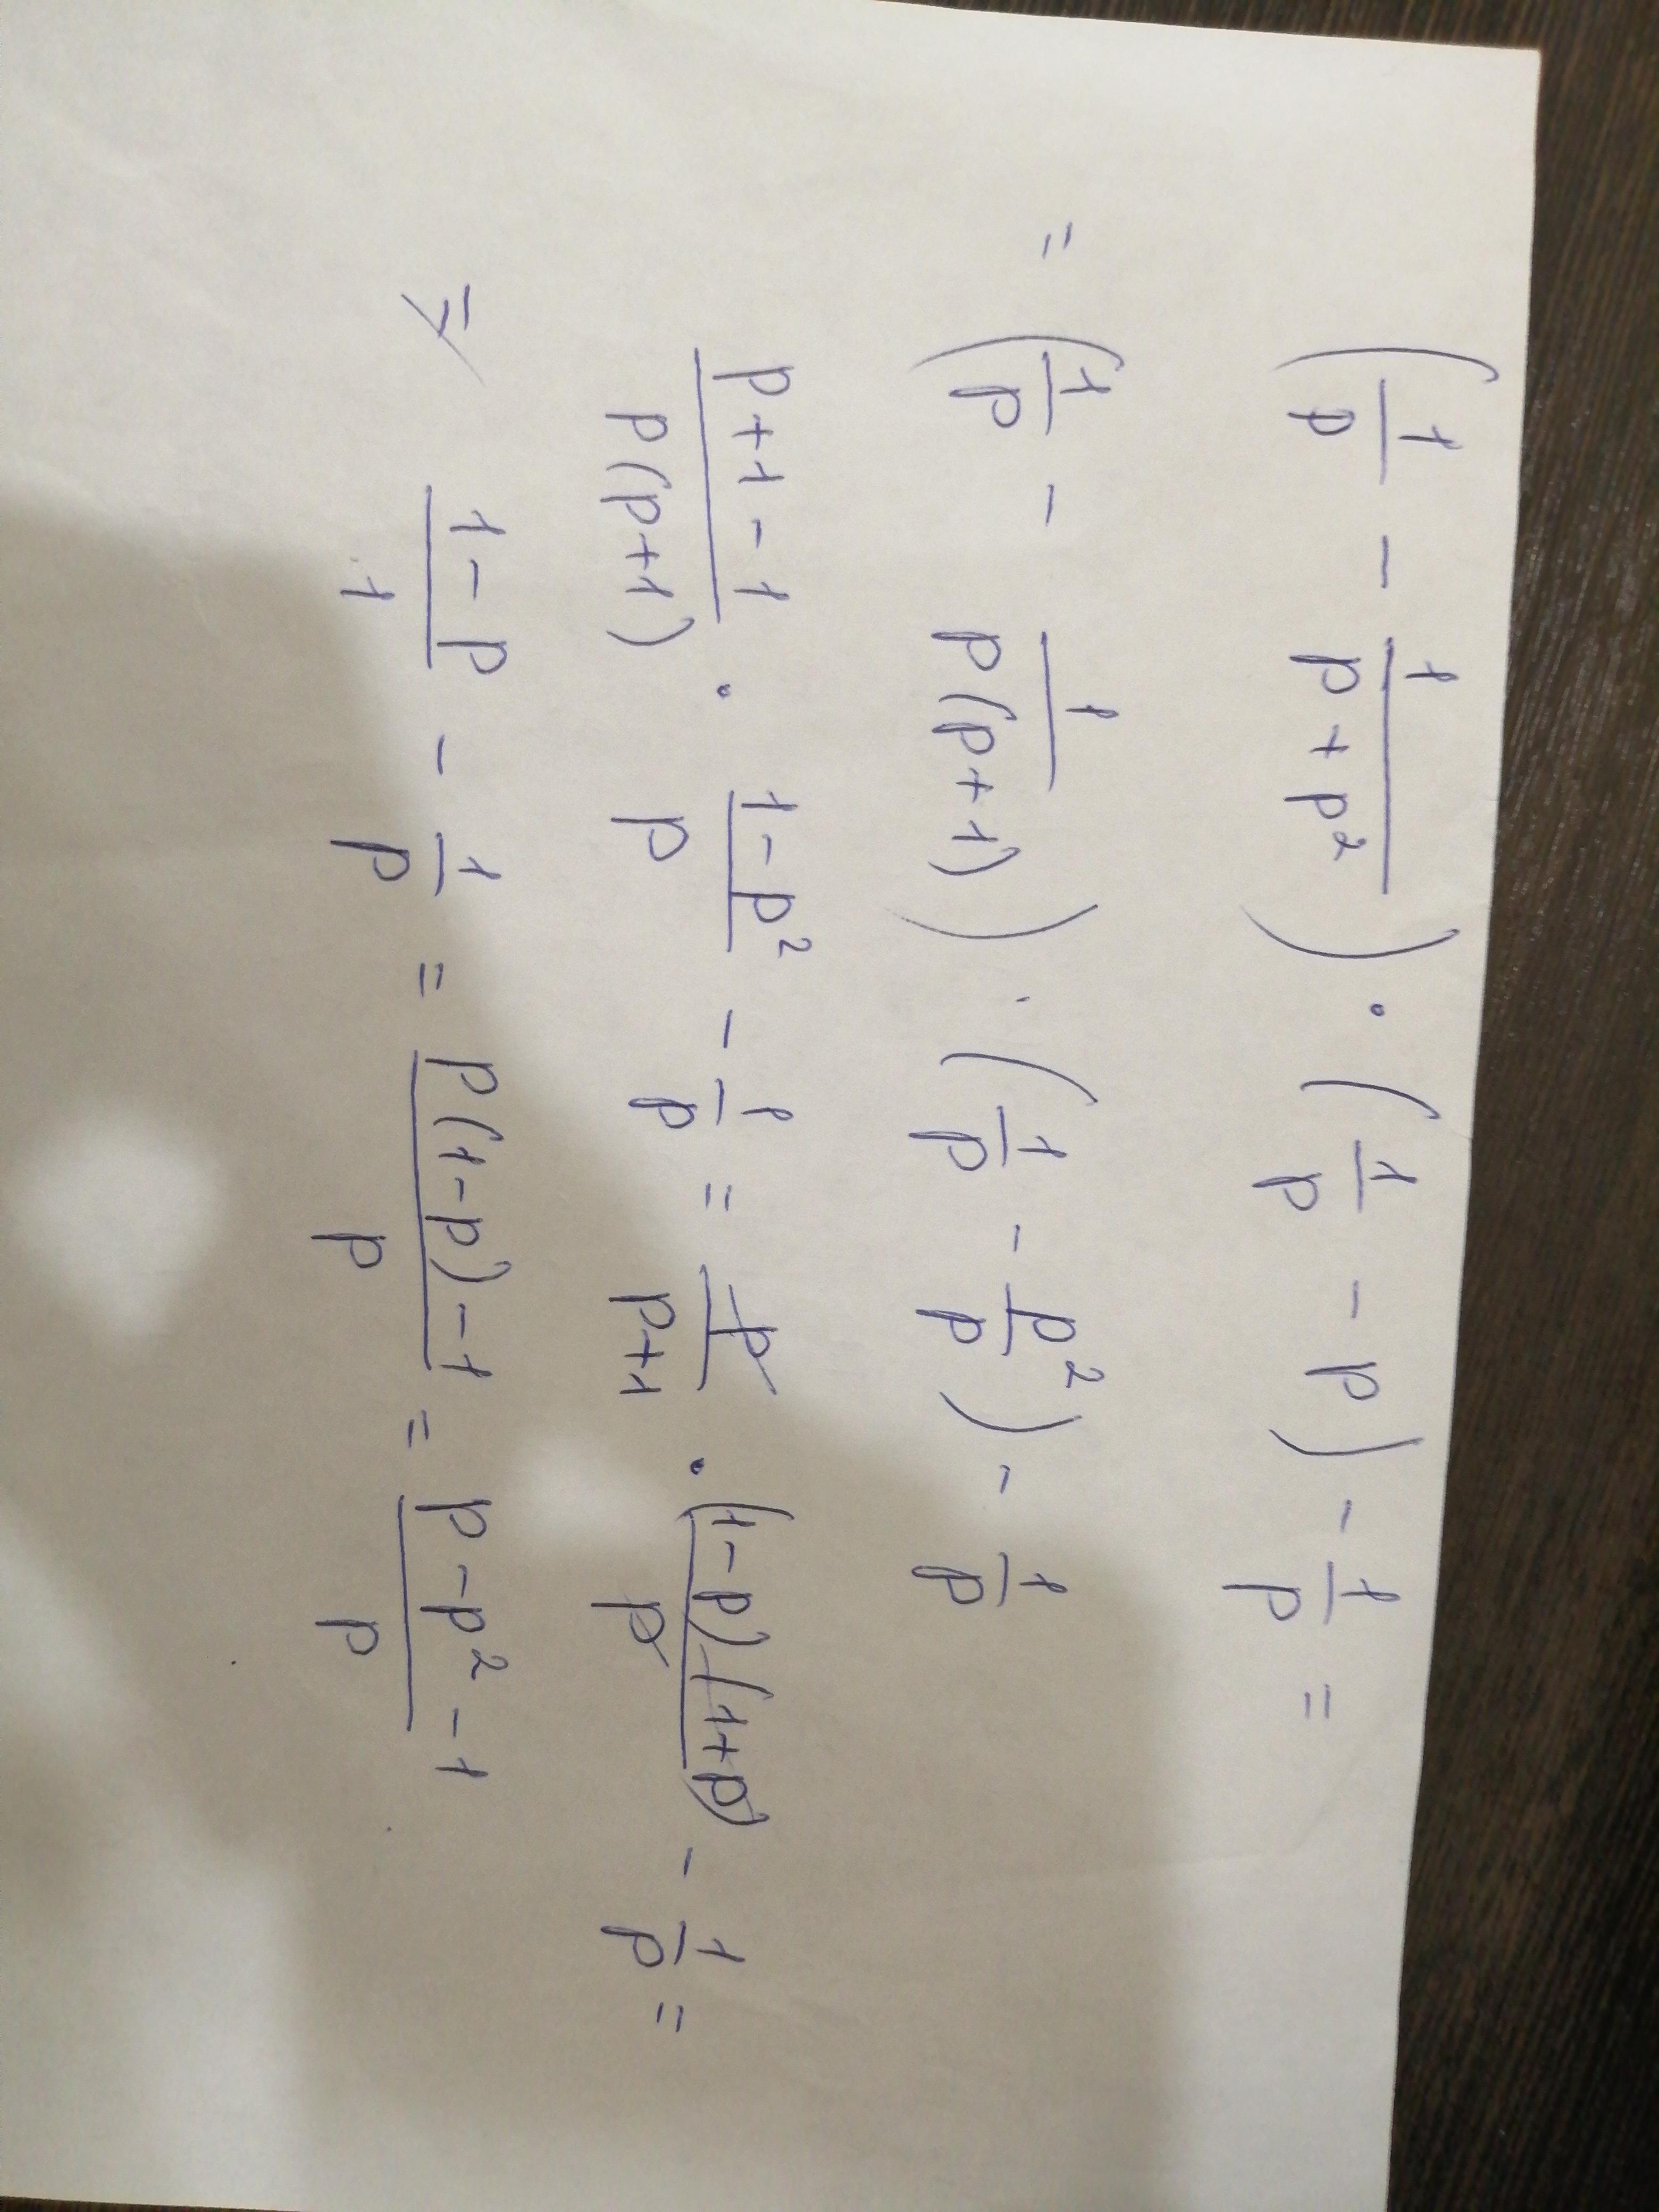 (1/p - 1/(p + p²)) · (1/p - p) - 1/p =
= (1/p - 1/(p(p+1))) · (1/p - p²/p) - 1/p
(p+1-1)/(p(p+1)) · (1-p²)/p - 1/p = p/(p+1) · ((1-p)(1+p))/p - 1/p =
= (1-p)/1 - 1/p = (p(1-p)-1)/p = (p-p²-1)/p